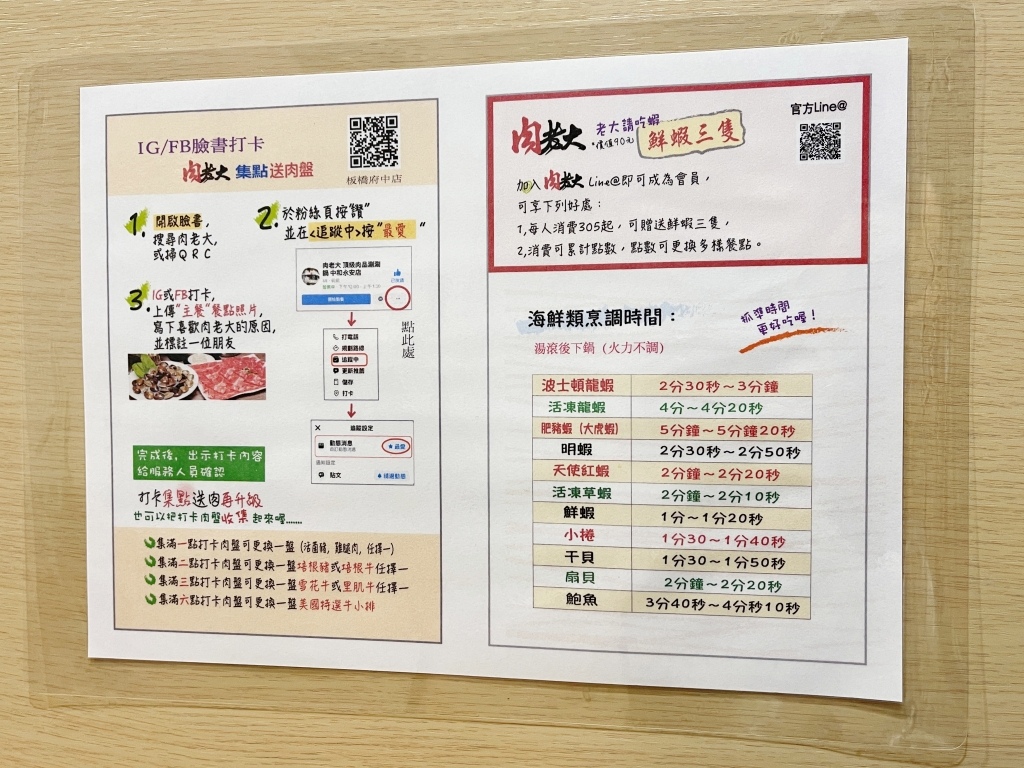 IG/FB臉書打卡
肉老大 集點送肉盤
板橋府中店
1. 開啟臉書,
搜尋肉老大,
或掃QRC
2. 於粉絲頁按"讚"
並在<追蹤中>按"最愛"
肉老大 頂級肉品涮涮
鍋 中和永安店
點此處
3. IG或FB打卡,
上傳"主餐"餐點照片,
寫下喜歡肉老大的原因,
並標註一位朋友
打電話
規劃路線
追蹤中
更新推薦
儲存
打卡
追蹤設定
動態消息
最愛
貼文
完成後, 出示打卡內容
給服務人員確認
打卡集點送肉再升級
也可以把打卡肉盤收集起來喔......
集滿一點打卡肉盤可更換一盤 (活菌豬, 雞腿肉, 任擇一)
集滿二點打卡肉盤可更換一盤培根豬或培根牛任擇一
集滿三點打卡肉盤可更換一盤雪花牛或里肌牛任擇一
集滿六點打卡肉盤可更換一盤美國特選牛小排
肉老大 老大請吃蝦
*價值90元
鮮蝦三隻
官方Line@
加入 肉老大 Line@即可成為會員,
可享下列好處:
1,每人消費305起, 可贈送鮮蝦三隻,
2,消費可累計點數, 點數可更換多樣餐點。
海鮮類烹調時間:
抓準時間
更好吃喔!
湯滾後下鍋 (火力不調)
波士頓龍蝦 2分30秒~3分鐘
活凍龍蝦 4分~4分20秒
肥豬蝦 (大虎蝦) 5分鐘~5分鐘20秒
明蝦 2分30秒~2分50秒
天使紅蝦 2分鐘~2分20秒
活凍草蝦 2分鐘~2分10秒
鮮蝦 1分~1分20秒
小捲 1分30~1分40秒
干貝 1分30~1分50秒
扇貝 2分鐘~2分20秒
鮑魚 3分40秒~4分秒10秒